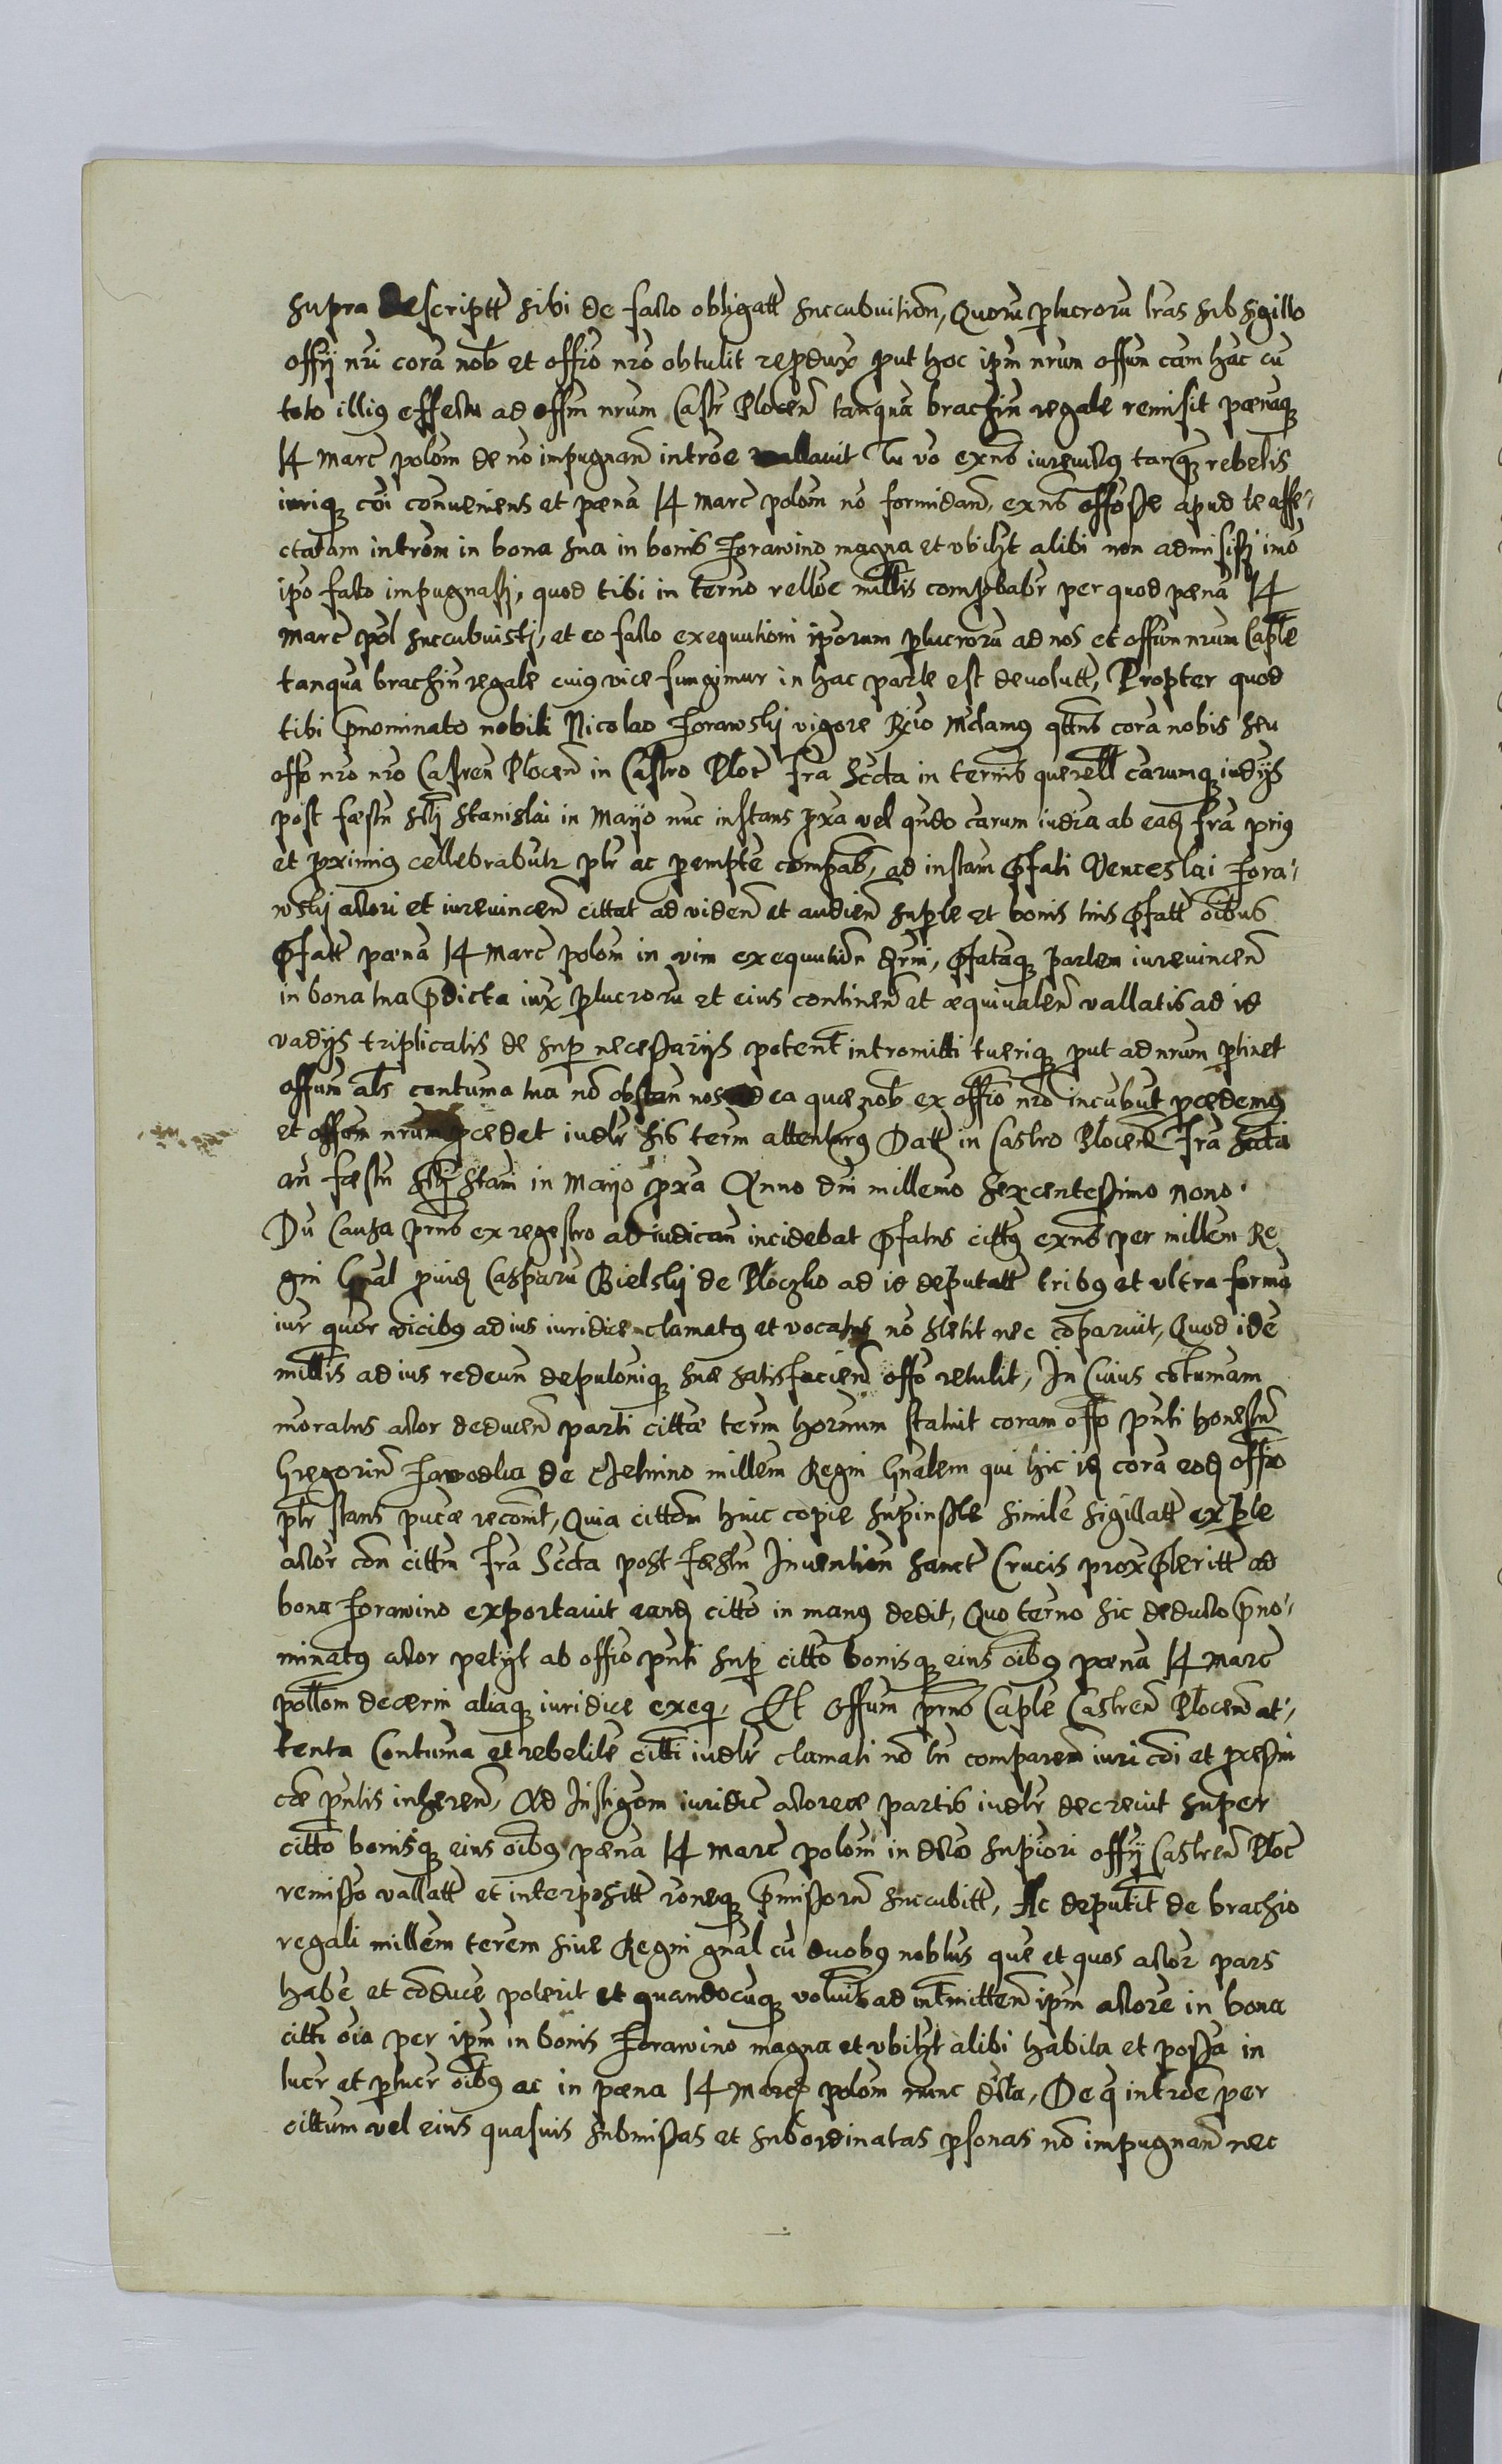 supra descriptt sibi de facto obligatt succubuition, Quoru plucroru lras sub sigillo
offij nri cora nob et offio nro obtulit repdux put hoc ipm nrum offum cam hac cu
toto illig effectu ad offm nrum Castr Plocen tanqua brachiu regale remisit pænaq
14 marc polom de no impugnan introe vallavit Tu vo exns iurevictg tanq rebelis
iuriq coi conveniens et pæna 14 marc polom no formidan, exns offose apud te affe-
ctatam introm in bona sua in bonis Zorawino magna et vbilzt alibi non admisisti imo
ipo facto impugnasti, quod tibi in termo relloe millis compbabr per quod pæna 14
marc pol succubuisti, et eo facto exequutioni iporum plucroru ad nos et offum nrum Caple
tanqua brachiu regale cuig vice fungimur in hac parte est devolutt, Propter quod
tibi pnominato nobili Nicolao Zorawskj vigore mclamg qttns cora nobis seu
offo nro nro Castren Plocen in Castro Ploc fra Scda in termis querell carumq iudijs
post fæstu Sti Stanislai in Maijo nuc instans pxa vel qndo carum iudia ab ead fra prig
et pximig cellebrabutr plr ac pempte compab, ad instam pfati Venceslai Zora-
wskj actori et iurevincen cittat ad viden et audien super te et bonis tuis pfatt oibus
pfatt pæna 14 marc polom in vim exequution drni, pfataq partem iurevincen
in bona tua pdicta iux plucroru et eius continen et æquivalen vallatis ad id
vadijs triplicatis de sup necessarijs potent intromitti tueriq put ad nrum ptinet
offum als contuma tua no obstan nos ad ea quæ nob ex offio nro incubut pcedemg
et offum nrum pcedet iudlr sis term attenturg Datt in Castro Plocen fra
an fæstu Sti Stani in Maijo pxa Anno dni millemo sexcentesimo nono.
Du Causa prns ex regestro ad iudican incidebat pfatus cittg exns per millem Re
gni Gnal pvid Casparu Bielskj de Ploczko ad id deputatt tribg et ultra forma
iur quor vicibg ad ius iuridice clamatg et vocatus no stetit nec coparuit, Quod ide
millis ad ius redeun depulomiq suæ satisfacien offo retulit, In Cuius cotumam
moratus actor deducen parti cittæ term hornum statuit coram offo pnti honestu
Gregoriu Zawodka de Chelmino millem Regni Gnalem qui hic id cora eod offio
plr stans pucæ reconit, Quia cittom huic copiæ supinste simile sigillatt ex pte
actor con cittm fra Scda post fæstu Invention Sanct Crucis prox pteritt ad
bona Zorawino exportavit eand citto in mang dedit, Quo termo sic deducto pno-
minatg actor petijt ab offio pnti sup citto bonisq eius oibg pæna 14 marc
pollom decerni aliaq iuridice exeq, Et Offum prns Caple Castren Plocen at-
tenta Contuma et rebelile citti iudlr clamati no tn comparen iuri coi et pcessui
cæ pntis inheren, Ad Instigom iuridic actoreæ partis iudlr decrevit super
citto bonisq eius oibg pæna 14 marc polom in dcto supiori offij Castren Ploc
remisso vallatt et interpositt roneq pmissoru succubitt, Ac deputit de brachio
regali millem terem sive Regni gnal cu duobg noblus que et quos actor pars
habe et coduce poterit et quandocuq voluit ad intmitten ipm actore in bona
citti oia per ipm in bonis Zorawino magna et ubilzt alibi habita et possa in
lucr et plucr oibg ac in pæna 14 marc polom nunc dcta, De q introe per
cittum vel eius quasuis submissas et subordinatas psonas no impugnan nec